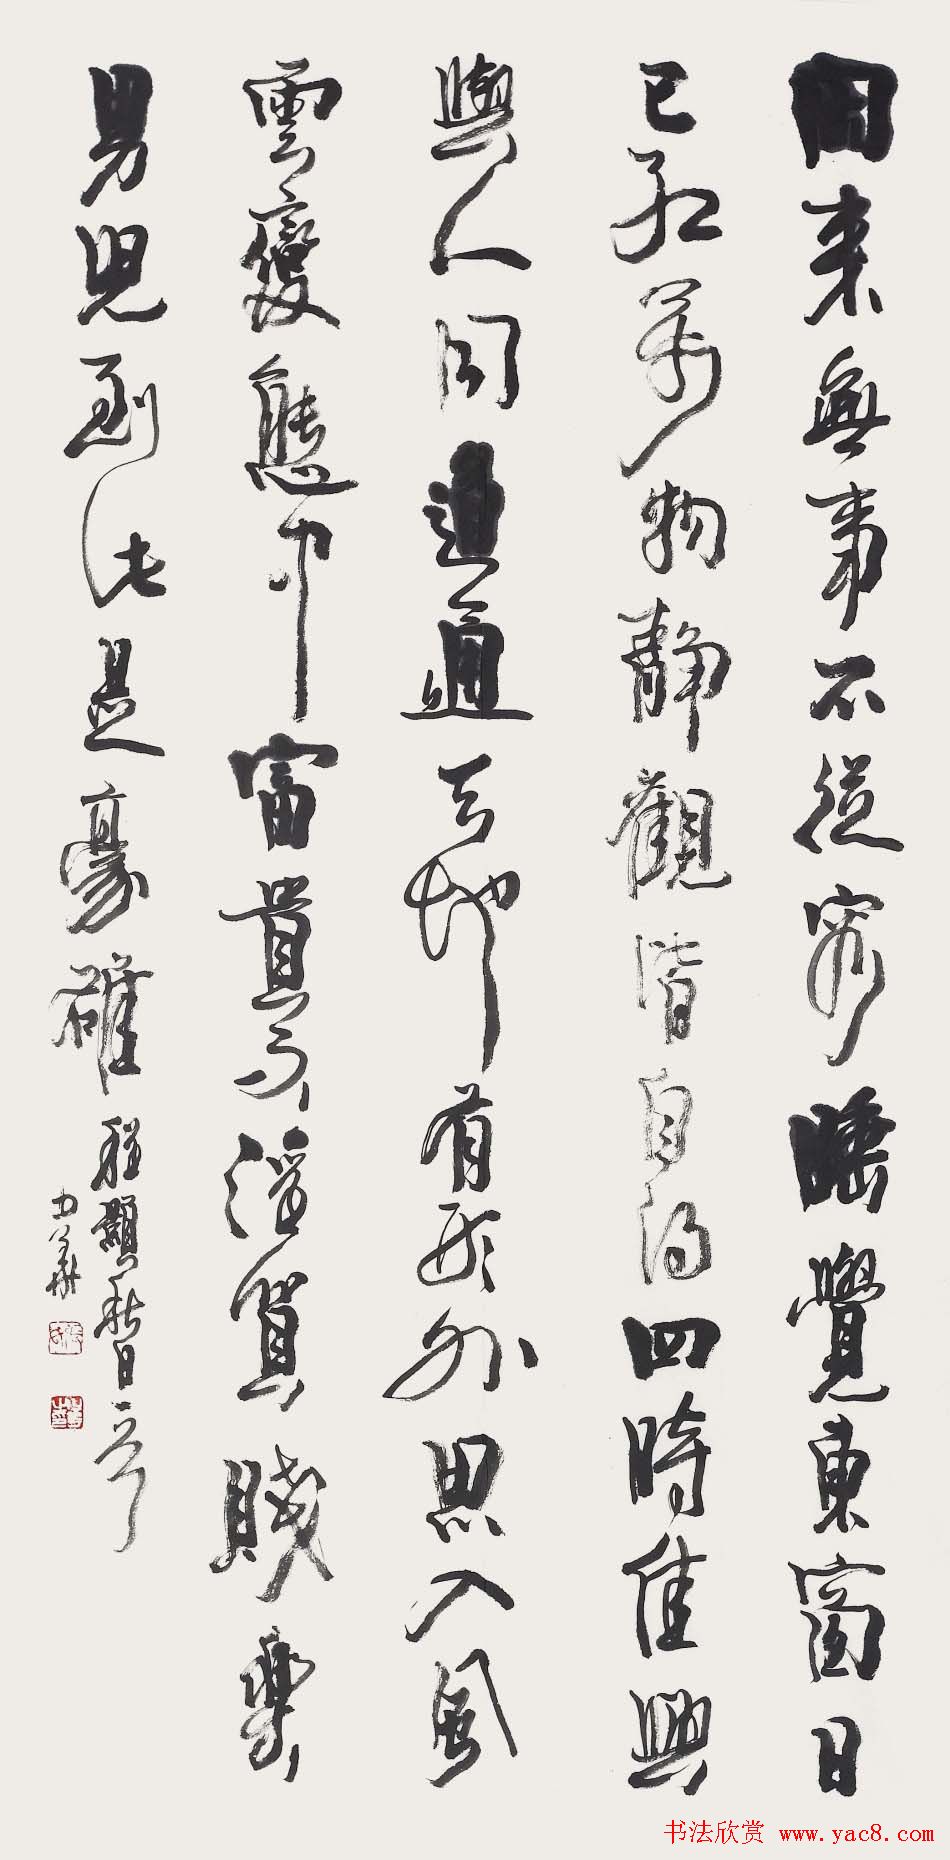 閒来無事不從容睡覺東窗日
已紅萬物静觀皆自得四時佳興
與人同道通天地有形外思入風
雲變態中富貴不淫貧賤樂
男児到此是豪雄 程顥秋日一首
书法欣赏 www.yac8.com